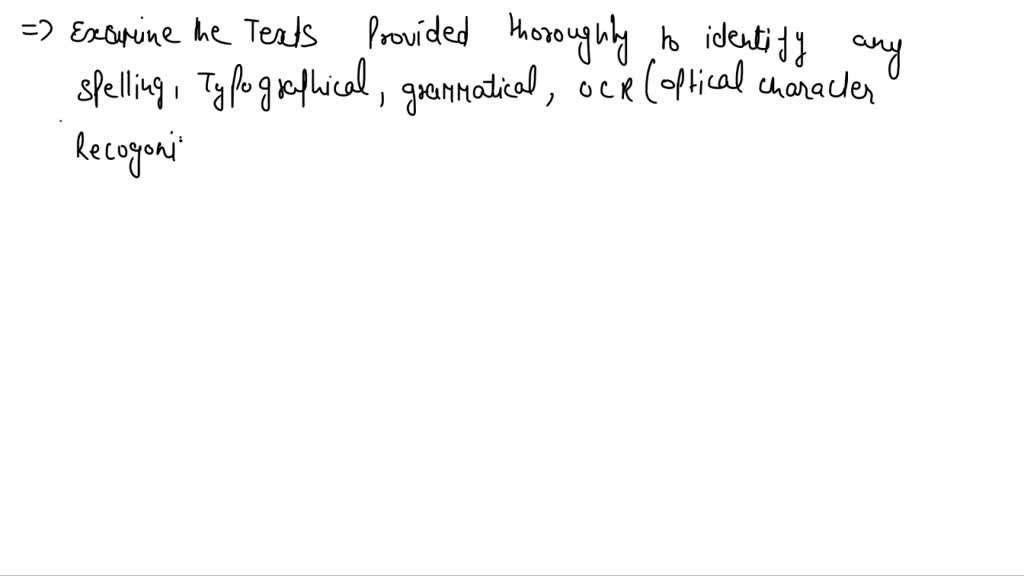 => Examine the Texts Provided thoroughly to identify any
spelling, Typographical, grammatical, OCR (optical character
Recogoni